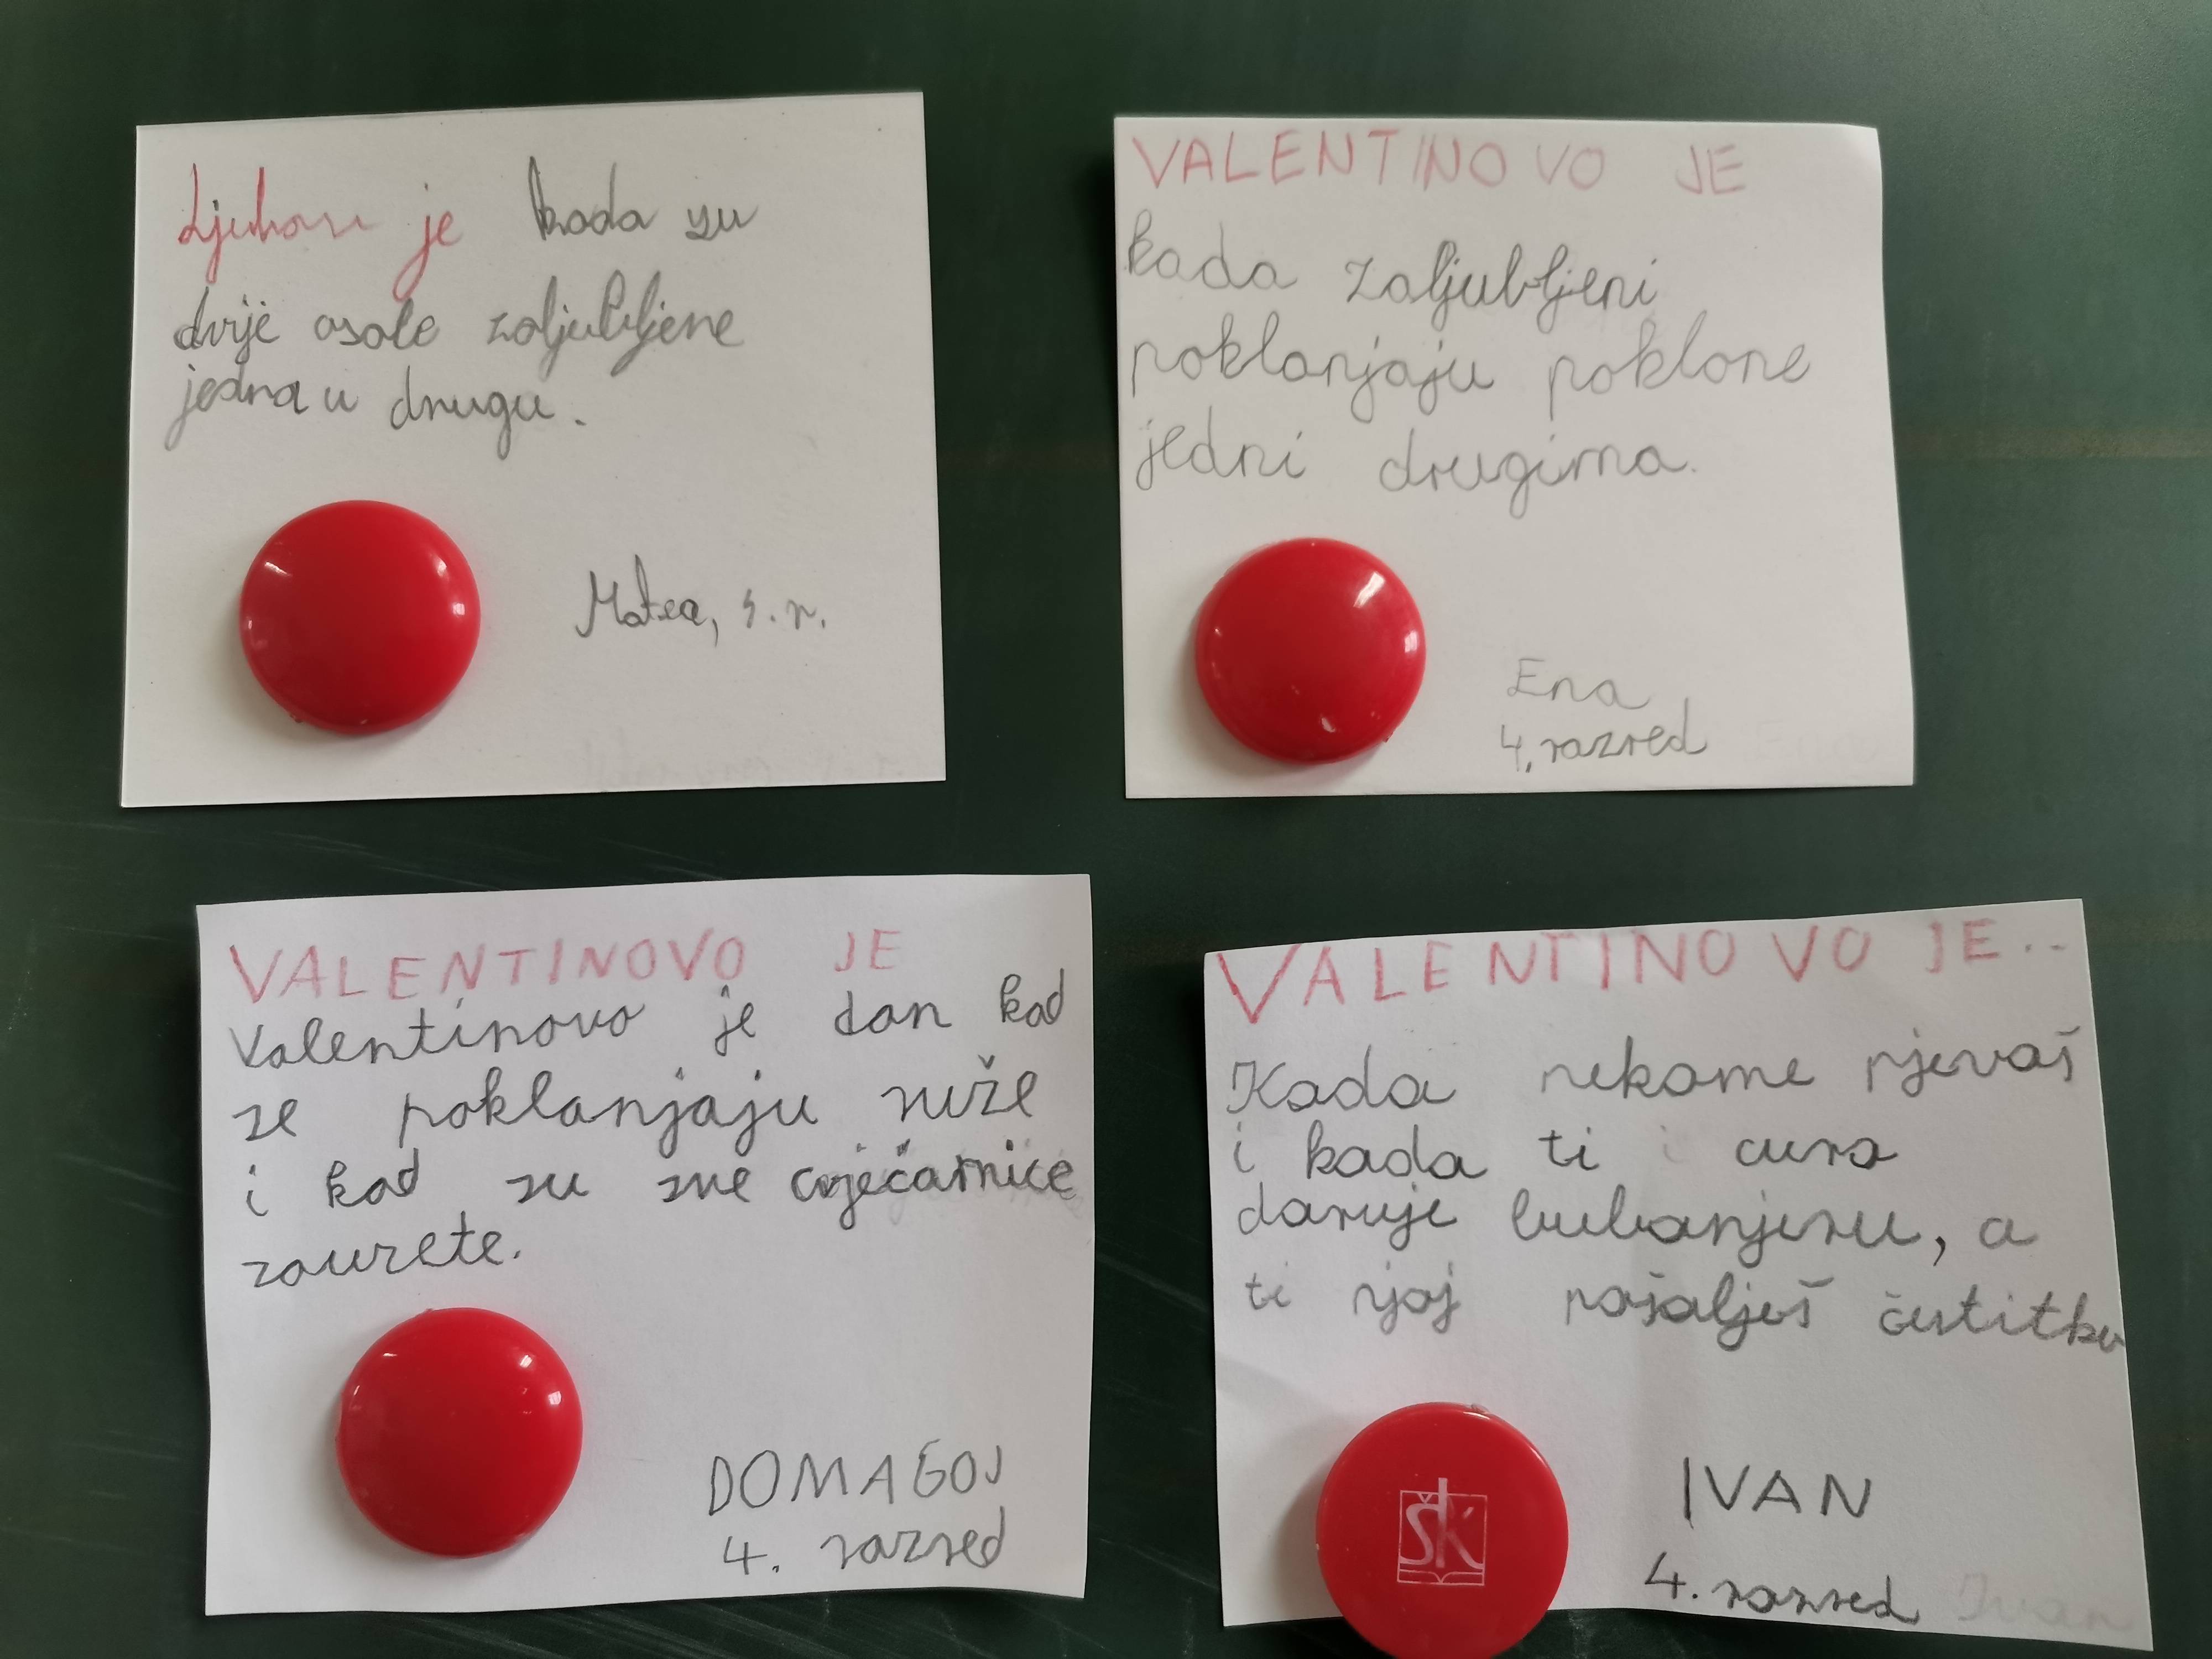 Ljubav je kada su
dvije osobe zaljubljene
jedna u drugu.
Matea, 4. r.
VALENTINOVO JE
kada zaljubljeni
poklanjaju poklone
jedni drugima.
Ena
4. razred
VALENTINOVO JE
Valentinovo je dan kad
se poklanjaju ruže
i kad su sve cvjećarnice
zauzete.
DOMAGOJ
4. razred
VALENTINOVO JE..
Kada nekome pjevaš
i kada ti cura
daruje bubanjeru, a
ti njoj pošalješ čestitku
IVAN
4. razred
Ivan
ŠK